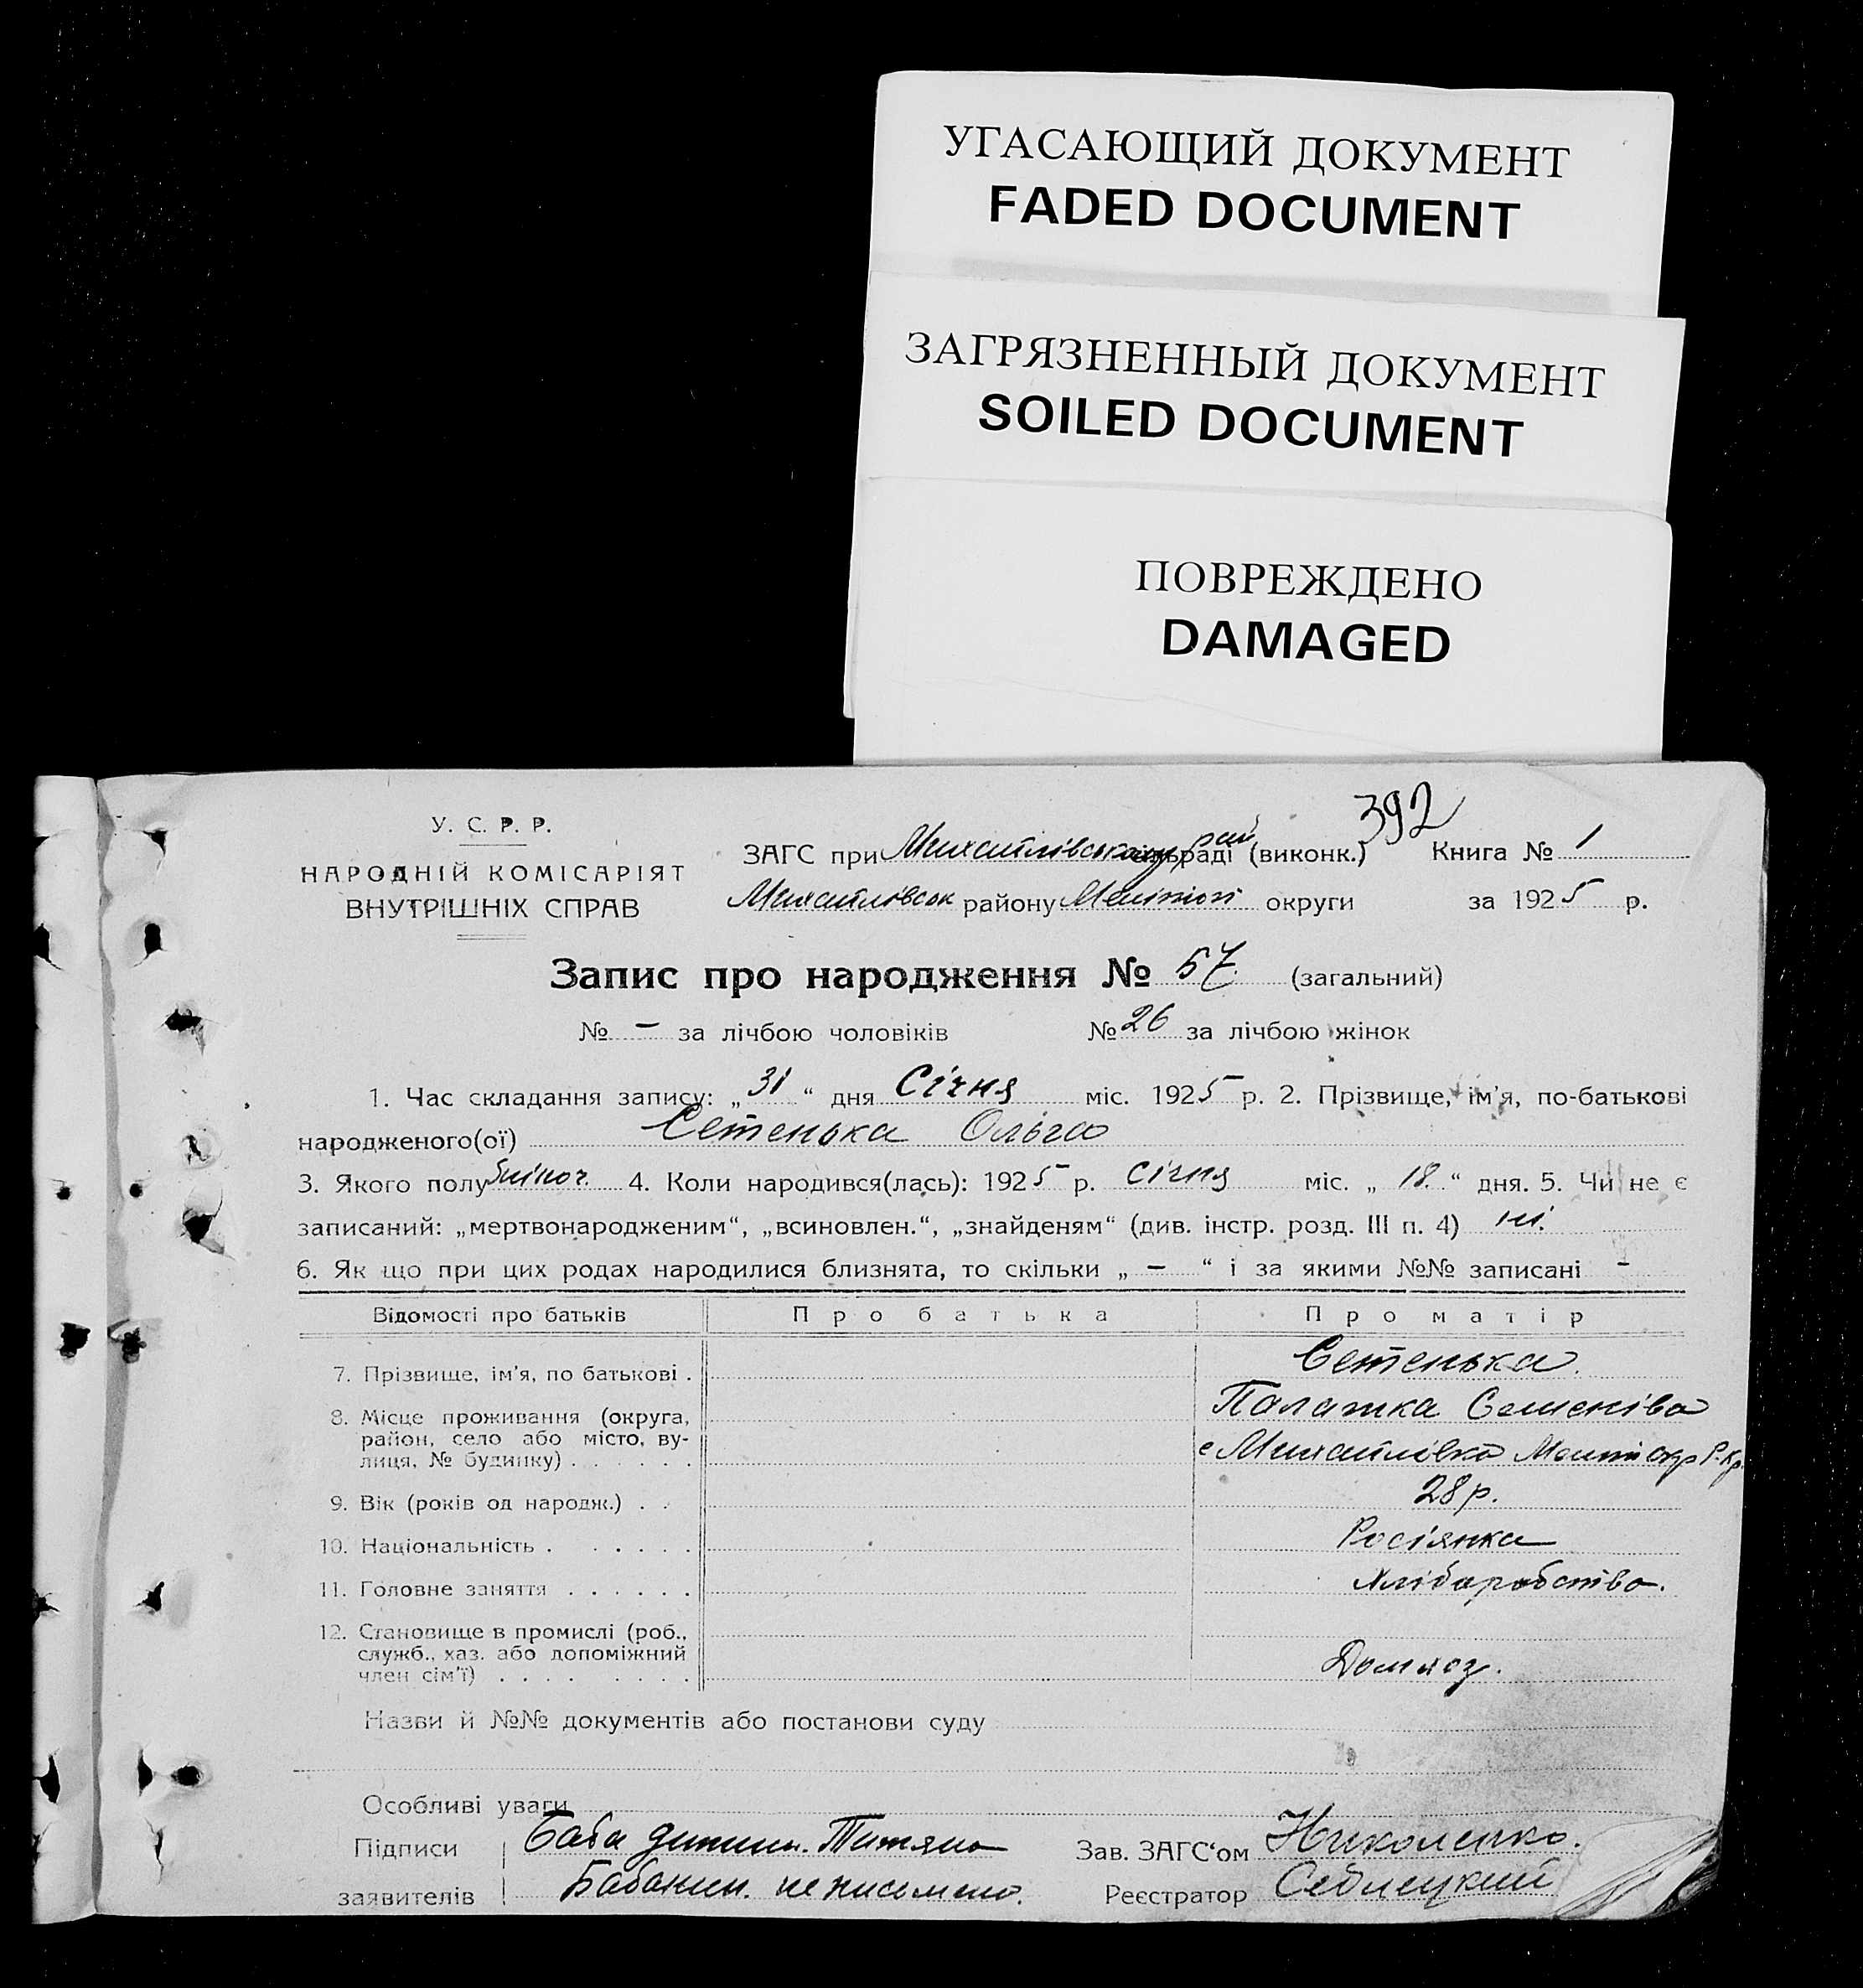 УГАСАЮЩИЙ ДОКУМЕНТ
FADED DOCUMENT
ЗАГРЯЗНЕННЫЙ ДОКУМЕНТ
SOILED DOCUMENT
ПОВРЕЖДЕНО
DAMAGED
392
У. С. Р. Р.
НАРОДНІЙ КОМІСАРІЯТ
ВНУТРІШНІХ СПРАВ
ЗАГС при Михайлівському рай (виконк.) Книга № 1
Михайлівськ району Мелітоп округи за 1925 р.
Запис про народження № 57. (загальний)
№ – за лічбою чоловіків № 26 за лічбою жінок
1. Час складання запису: „31“ дня Січня міс. 1925 р. 2. Прізвище, ім'я, по-батькові
народженого(ої) Сетенька Ольга
3. Якого полу жіноч. 4. Коли народився(лась): 1925 р. січня міс. „18.“ дня. 5. Чи не є
записаний: „мертвонародженим“, „всиновлен.“, „знайденям“ (див. інстр. розд. III п. 4) ні.
6. Як що при цих родах народилися близнята, то скільки „–“ і за якими №№ записані –
Відомості про батьків Про батька Про матір
7. Прізвище, ім'я, по батькові . Сетенька.
8. Місце проживання (округа, Палажка Семенівна
район, село або місто, ву-
лиця, № будинку) . . . . . . с Михайлівка Меліт окр
9. Вік (років од народж.) . . 28 р.
10. Національність . . . . . . Росіянка
11. Головне заняття . . . . . . Хліборобство.
12. Становище в промислі (роб.,
служб., хаз. або допоміжний
член сім'ї) . . . . . . . Домхоз.
Назви й №№ документів або постанови суду
Особливі уваги
Підписи Баба дитини. Титяна Зав. ЗАГС'ом Николенко.
заявителів неписьмено. Реєстратор